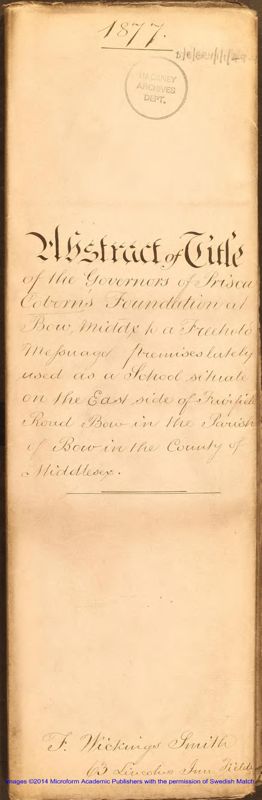 1877.
HACKNEY
ARCHIVES
DEPT.
Abstract of Title
of the Governors of Prisca
Coborns Foundation at
Bow, Middx to a Freehold
Messuage & premises lately
used as a School situate
on the East side of Fairfield
Road Bow in the Parish
of Bow in the County of
Middlesex.
F. Wickings Smith
63 Lincolns Inn Fields
Images ©2014 Microform Academic Publishers with the permission of Swedish Match